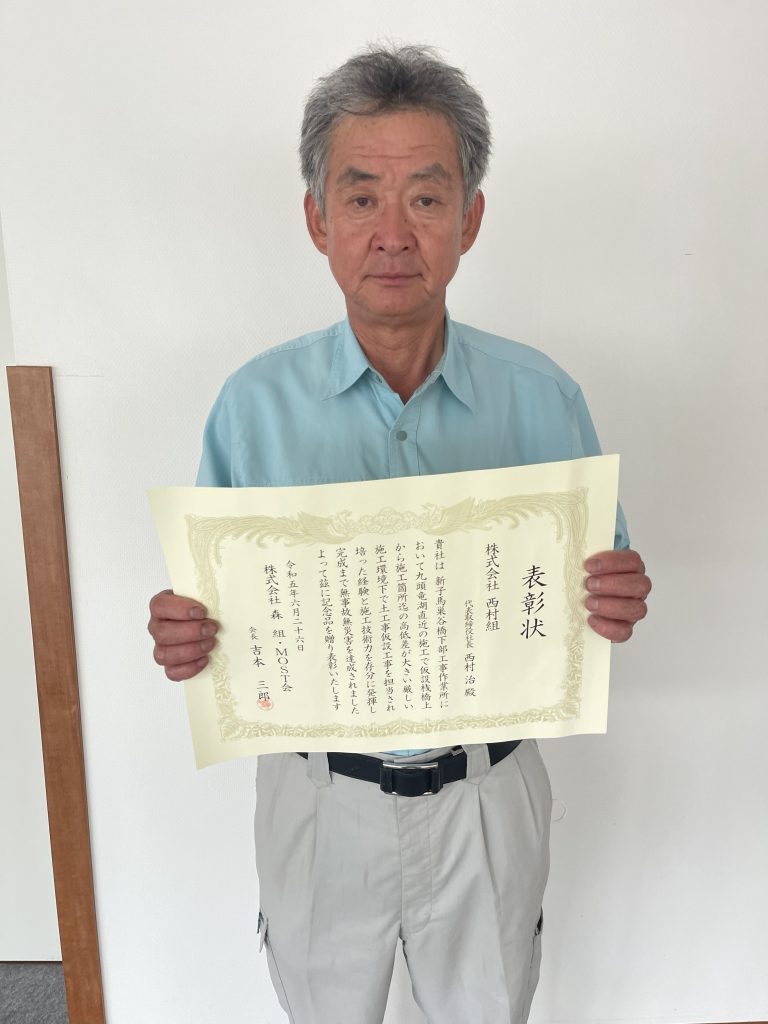 表彰状
株式会社 西村組
代表取締役社長 西村 治 殿
貴社は 新子馬巣谷橋下部工事作業所に
おいて九頭竜湖直近の施工で仮設桟橋上
から施工箇所迄の高低差が大きい厳しい
施工環境下で土工事仮設工事を担当され
培った経験と施工技術力を存分に発揮し
完成まで無事故無災害を達成されました
よって茲に記念品を贈り表彰いたします
令和五年六月二十六日
株式会社 森 組・MOST会
会長 吉本 三郎